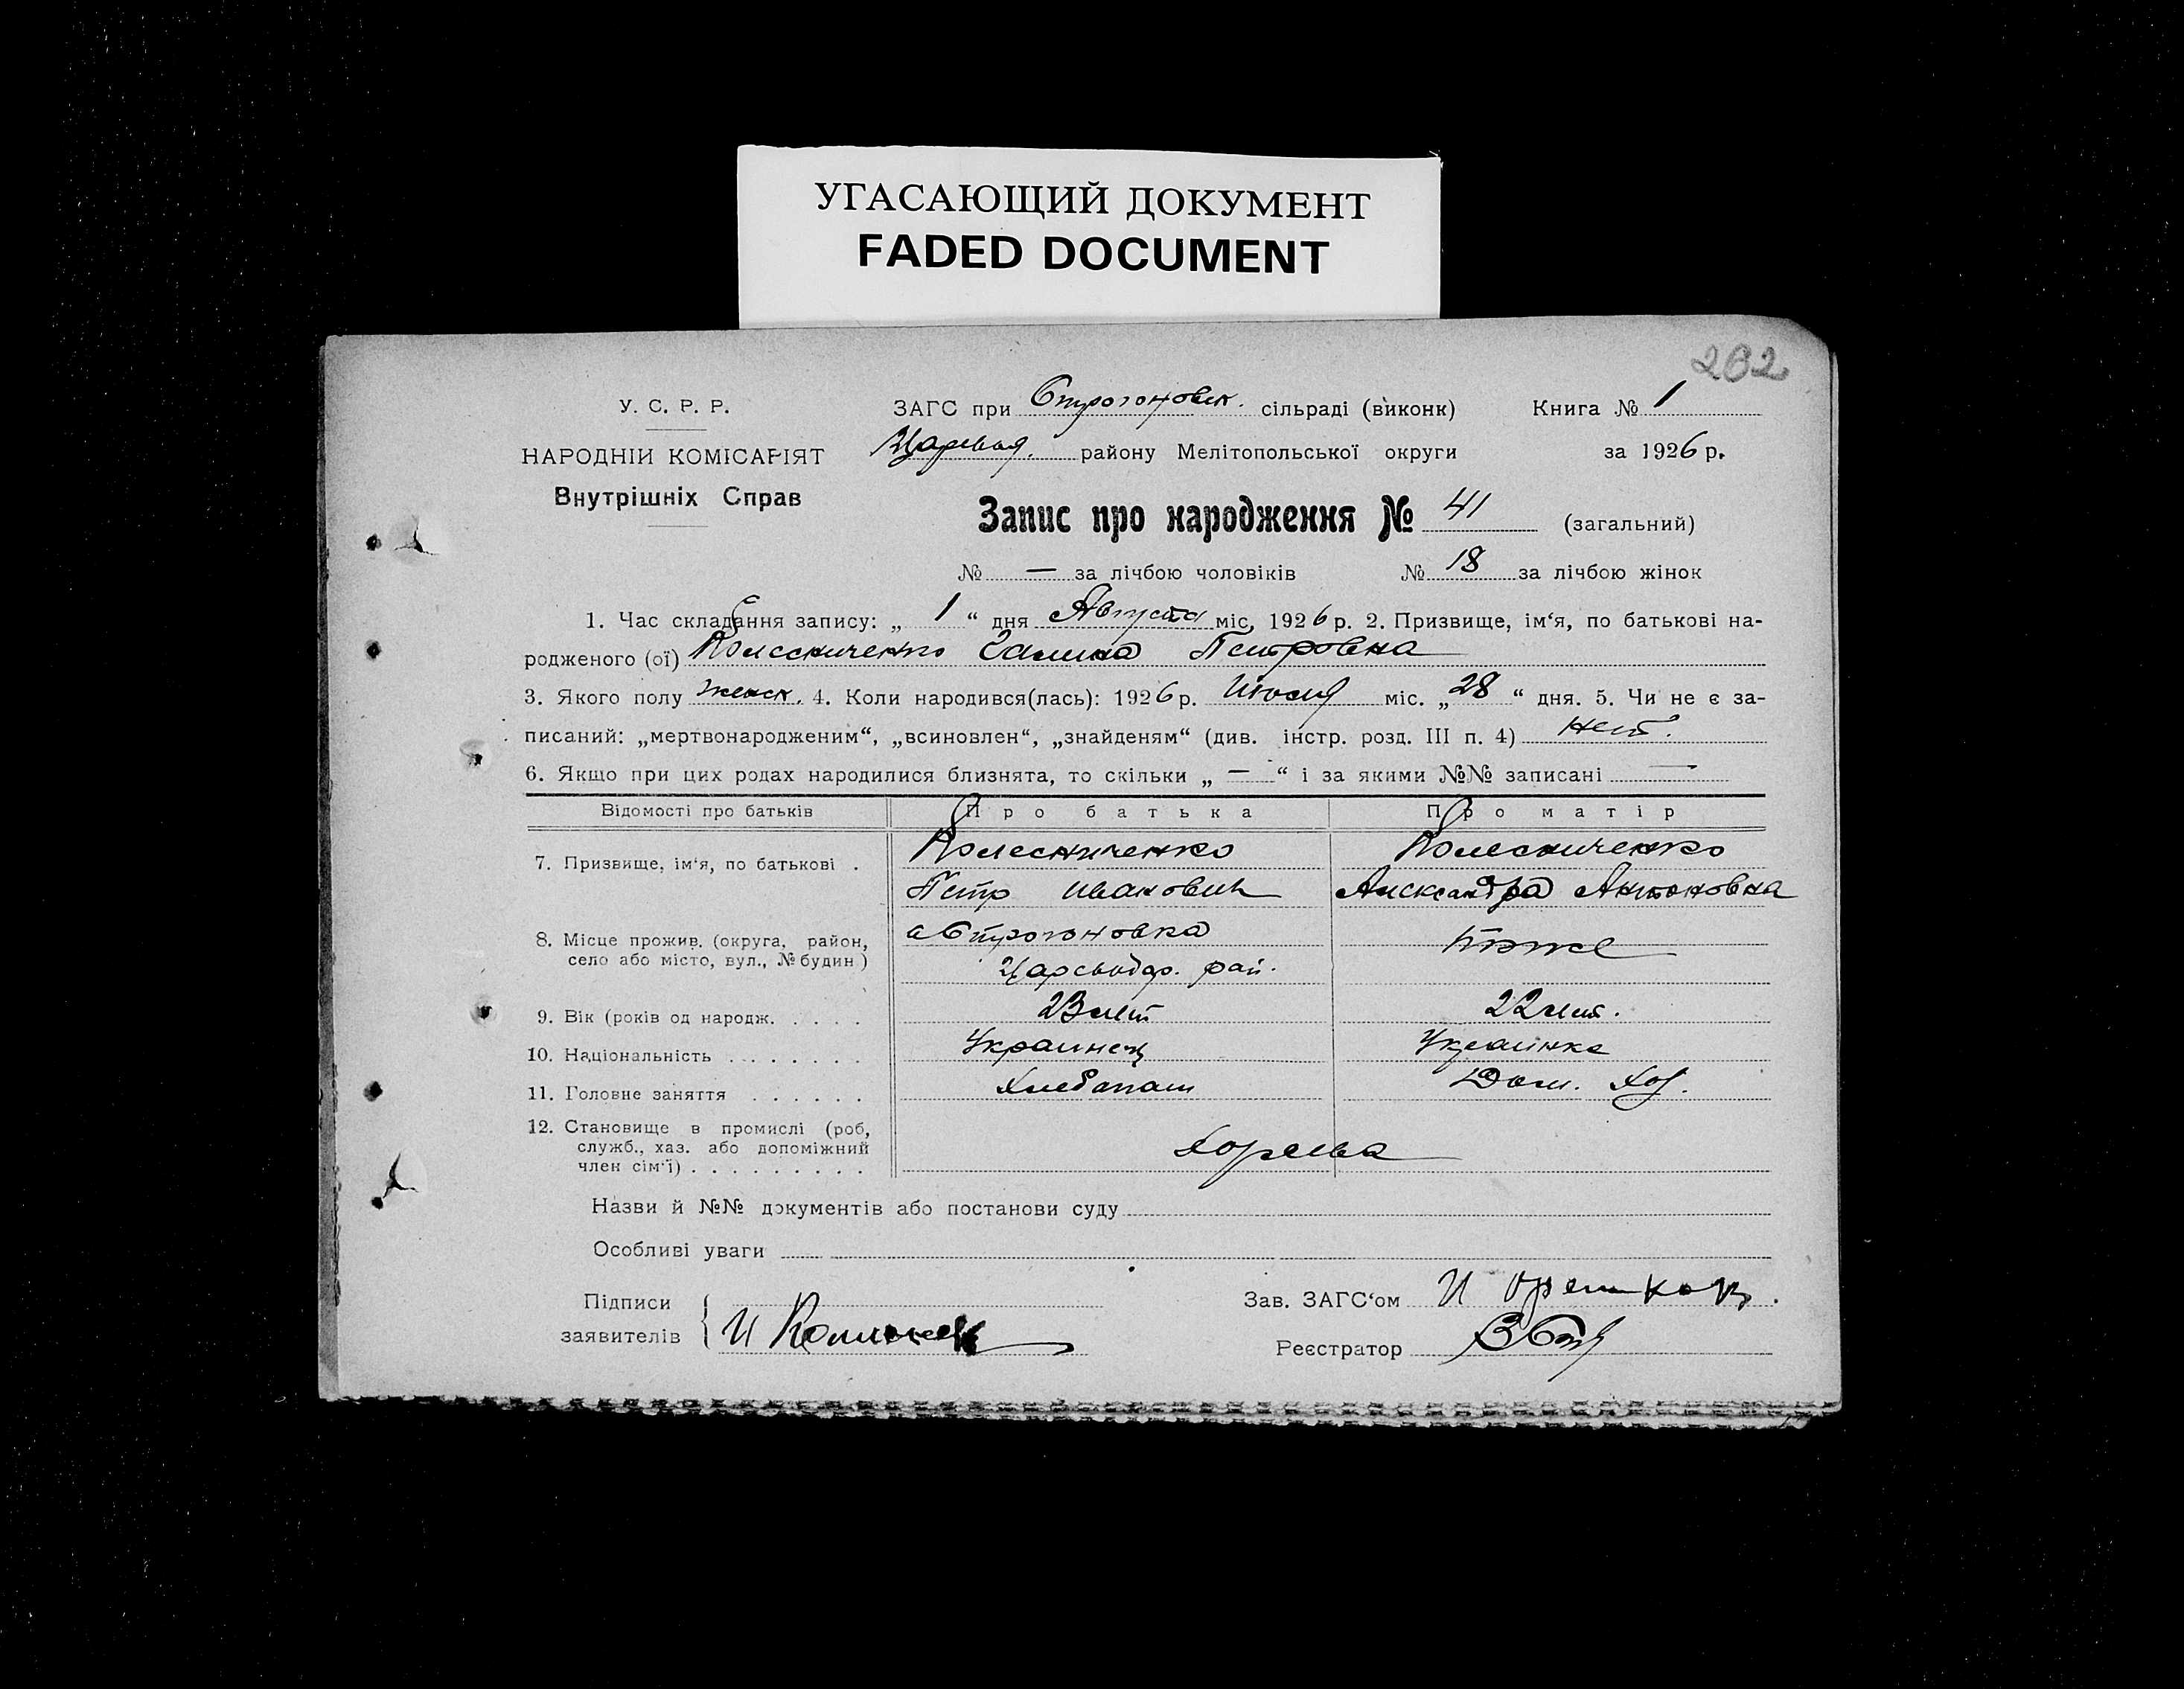 УГАСАЮЩИЙ ДОКУМЕНТ
FADED DOCUMENT
202
У. С. Р. Р.
НАРОДНІЙ КОМІСАРІЯТ
Внутрішніх Справ
ЗАГС при Строгоновск. сільраді (виконк) Книга № 1
району Мелітопольської округи за 1926 р.
Запис про народження № 41 (загальний)
№ — за лічбою чоловіків № 18 за лічбою жінок
1. Час складання запису: „ 1 “ дня Августа міс. 1926 р. 2. Призвище, ім‘я, по батькові на-
родженого (ої) Колесниченко Галина Петровна
3. Якого полу женск. 4. Коли народився(лась): 1926 р. Июля міс. „ 28 “ дня. 5. Чи не є за-
писаний: „мертвонародженим“, „всиновлен“, „знайденям“ (див. інстр. розд. III п. 4) нет.
6. Якщо при цих родах народилися близнята, то скільки „ — “ і за якими №№ записані —
Відомості про батьків Про батька Про матір
7. Призвище, ім‘я, по батькові . Колесниченко Колесниченко
Петр Иванович Александра Антоновна
8. Місце прожив. (округа, район, село або місто, вул., № будин) с Строгоновка тоже
рай.
9. Вік (років од народж. . . . . 23 лет 22 лет.
10. Національність . . . . . . . Украинец Украинка
11. Головне заняття . . . . . . Хлебопаш Дом. Хоз.
12. Становище в промислі (роб, служб., хаз. або допоміжний член сім‘ї) . . . . . . . . .
Назви й №№ документів або постанови суду
Особливі уваги
Підписи
заявителів
Зав. ЗАГС‘ом И
Реєстратор